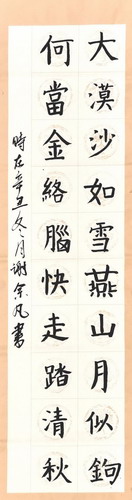 大漠沙如雪燕山月似鉤
何當金絡腦快走踏清秋
時在辛丑冬月謝宗凡書